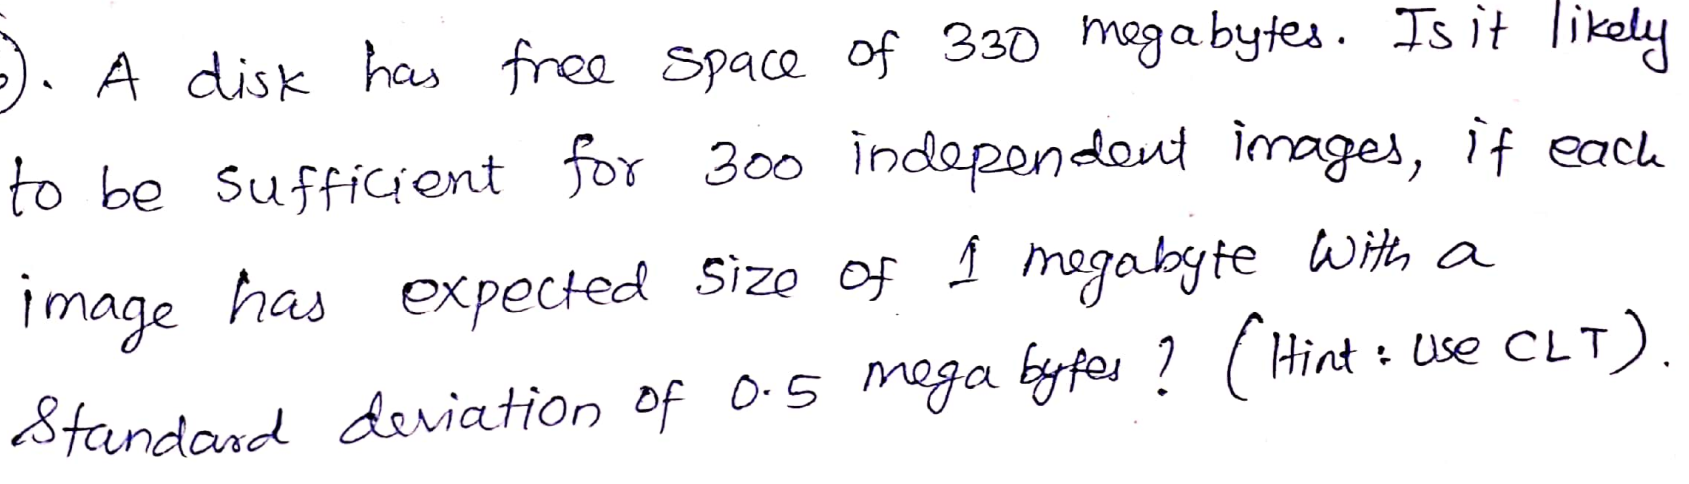 ). A disk has free space of 330 megabytes. Is it likely
to be sufficient for 300 independent images, if each
image has expected size of 1 megabyte with a
Standard deviation of 0.5 mega bytes? (Hint: Use CLT).